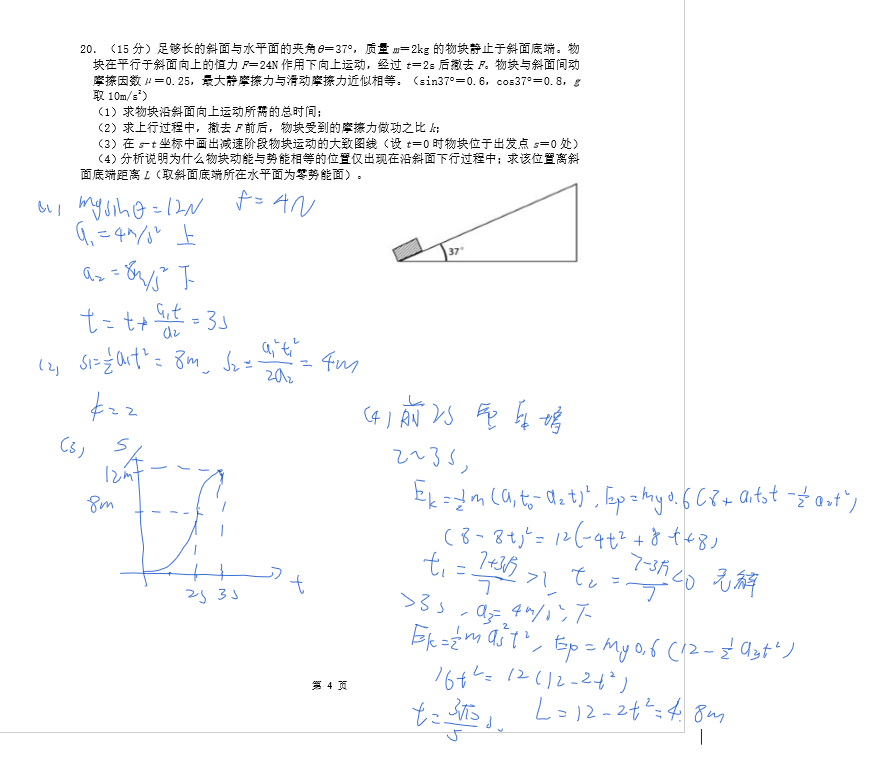 20．（15分）足够长的斜面与水平面的夹角θ＝37°，质量 m＝2kg 的物块静止于斜面底端。物
块在平行于斜面向上的恒力 F＝24N 作用下向上运动，经过 t＝2s 后撤去 F。物块与斜面间动
摩擦因数μ＝0.25，最大静摩擦力与滑动摩擦力近似相等。（sin37°＝0.6，cos37°＝0.8，g
取 10m/s²）
（1）求物块沿斜面向上运动所需的总时间；
（2）求上行过程中，撤去 F 前后，物块受到的摩擦力做功之比 k；
（3）在 s-t 坐标中画出减速阶段物块运动的大致图线（设 t＝0 时物块位于出发点 s＝0 处）
（4）分析说明为什么物块动能与势能相等的位置仅出现在沿斜面下行过程中；求该位置离斜
面底端距离 L（取斜面底端所在水平面为零势能面）。
37°
(1) mgsinθ=12N f=4N
a₁=4m/s² 上
a₂=8m/s² 下
t=t+a₁t/a₂=3s
(2) s₁=½a₁t²=8m、s₂=a₁²t₁²/2a₂=4m
k=2
(3) s
12m
8m
2s 3s t
(4) 前2s
2~3s,
Ek=½m(a₁t₀-a₂t)², Ep=mg0.6(8+a₁t₀t-½a₂t²)
(8-8t)²=12(-4t²+8t+8)
>1, t₂= <0 无解
>3s, a₃=4m/s², 下
Ek=½ma₃²t², Ep=mg0.6(12-½a₃t²)
16t²=12(12-2t²)
t=3√15/5 s、 L=12-2t²=4.8m
第 4 页